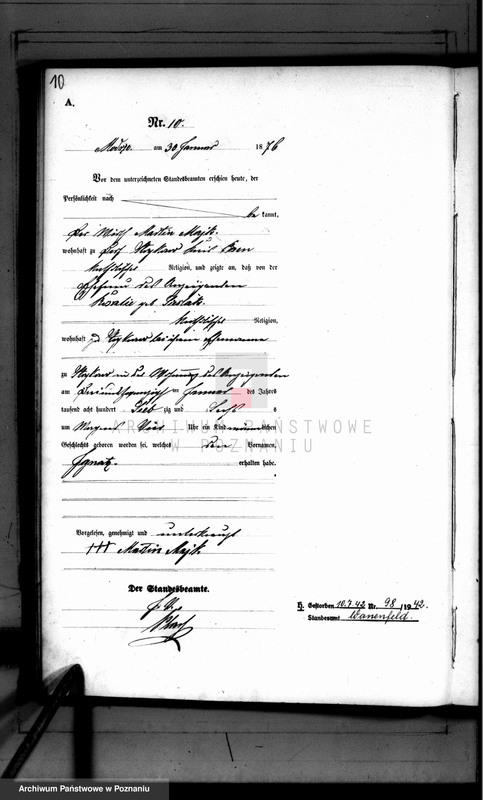 10
A.
Nr. 10.
am 30 Januar 1876
Vor dem unterzeichneten Standesbeamten erschien heute, der
Persönlichkeit nach
be kannt,
der Wirth Martin Majk.
wohnhaft zu Dorf
katholischer Religion, und zeigte an, daß von der
Ehefrau des Anzeigenden
Rosalie geb.
katholischer Religion,
wohnhaft zu bei ihrem Ehemanne
zu in der Wohnung des Anzeigenden
am Januar des Jahres
tausend acht hundert Sieb zig und sechs
um Uhr ein Kind männlichen
Geschlechts geboren worden sei, welches den Vornamen
Ignatz. erhalten habe.
ARCHIWUM PAŃSTWOWE
W POZNANIU
Vorgelesen, genehmigt und unterkreuzt
††† Martin Majk.
Der Standesbeamte.
H. Gestorben 10.7.42 Nr. 98/1942.
Standesamt Wonenfeld.
Archiwum Państwowe w Poznaniu